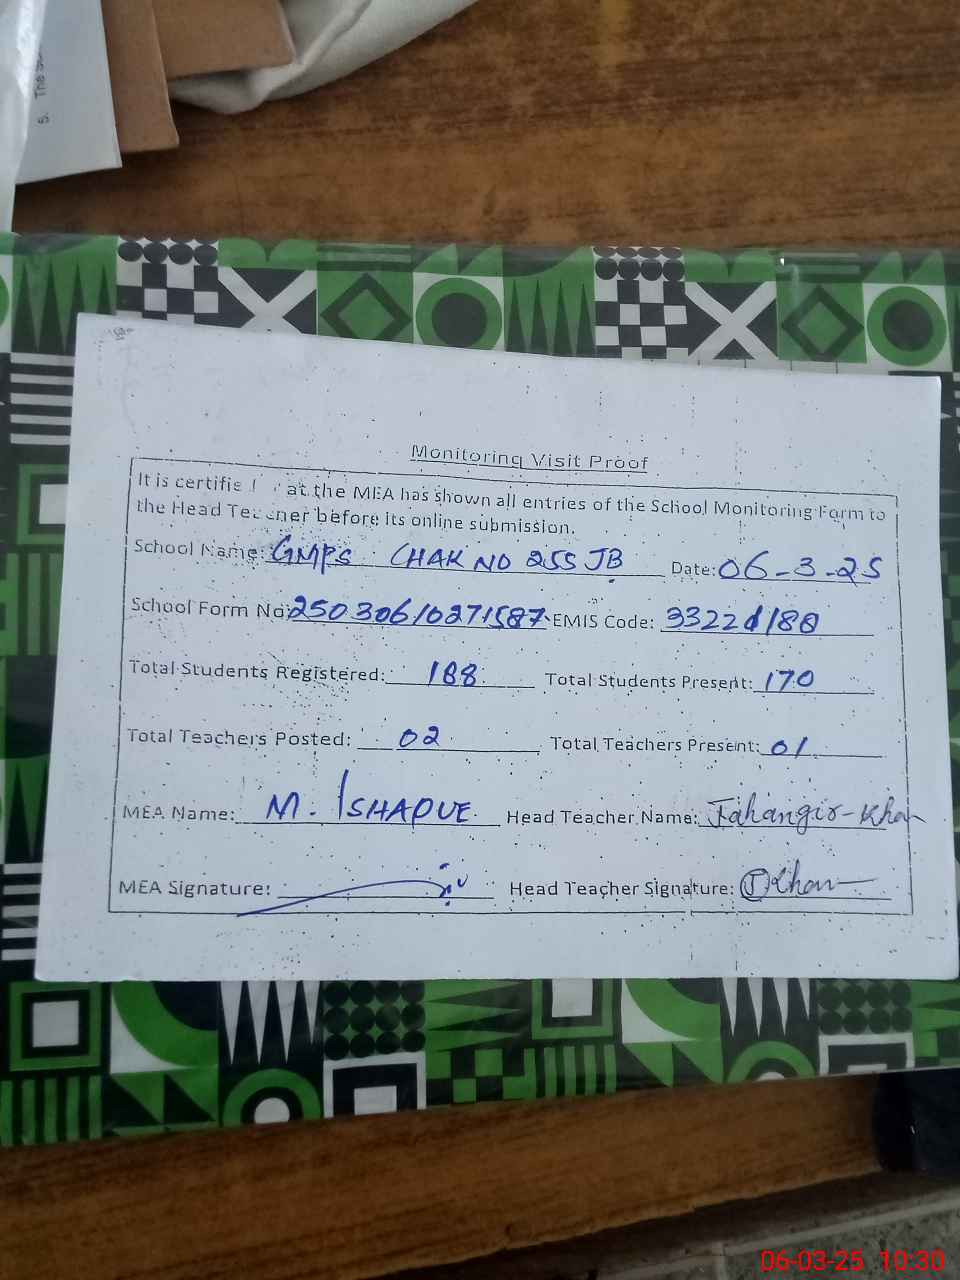 5. The
Monitoring Visit Proof
It is certifie at the MEA has shown all entries of the School Monitoring Form to
the Head Teacher before its online submission.
School Name: GMPS CHAK NO 255 JB Date: 06-3-25
School Form No: 25030610271587 EMIS Code:
Total Students Registered: 188 Total Students Present: 170
Total Teachers Posted: 02 Total Teachers Present: 01
MEA Name: M. ISHAQUE Head Teacher Name: Jahangir-Khan
MEA Signature: Head Teacher Signature: J Khan
06-03-25 10:30